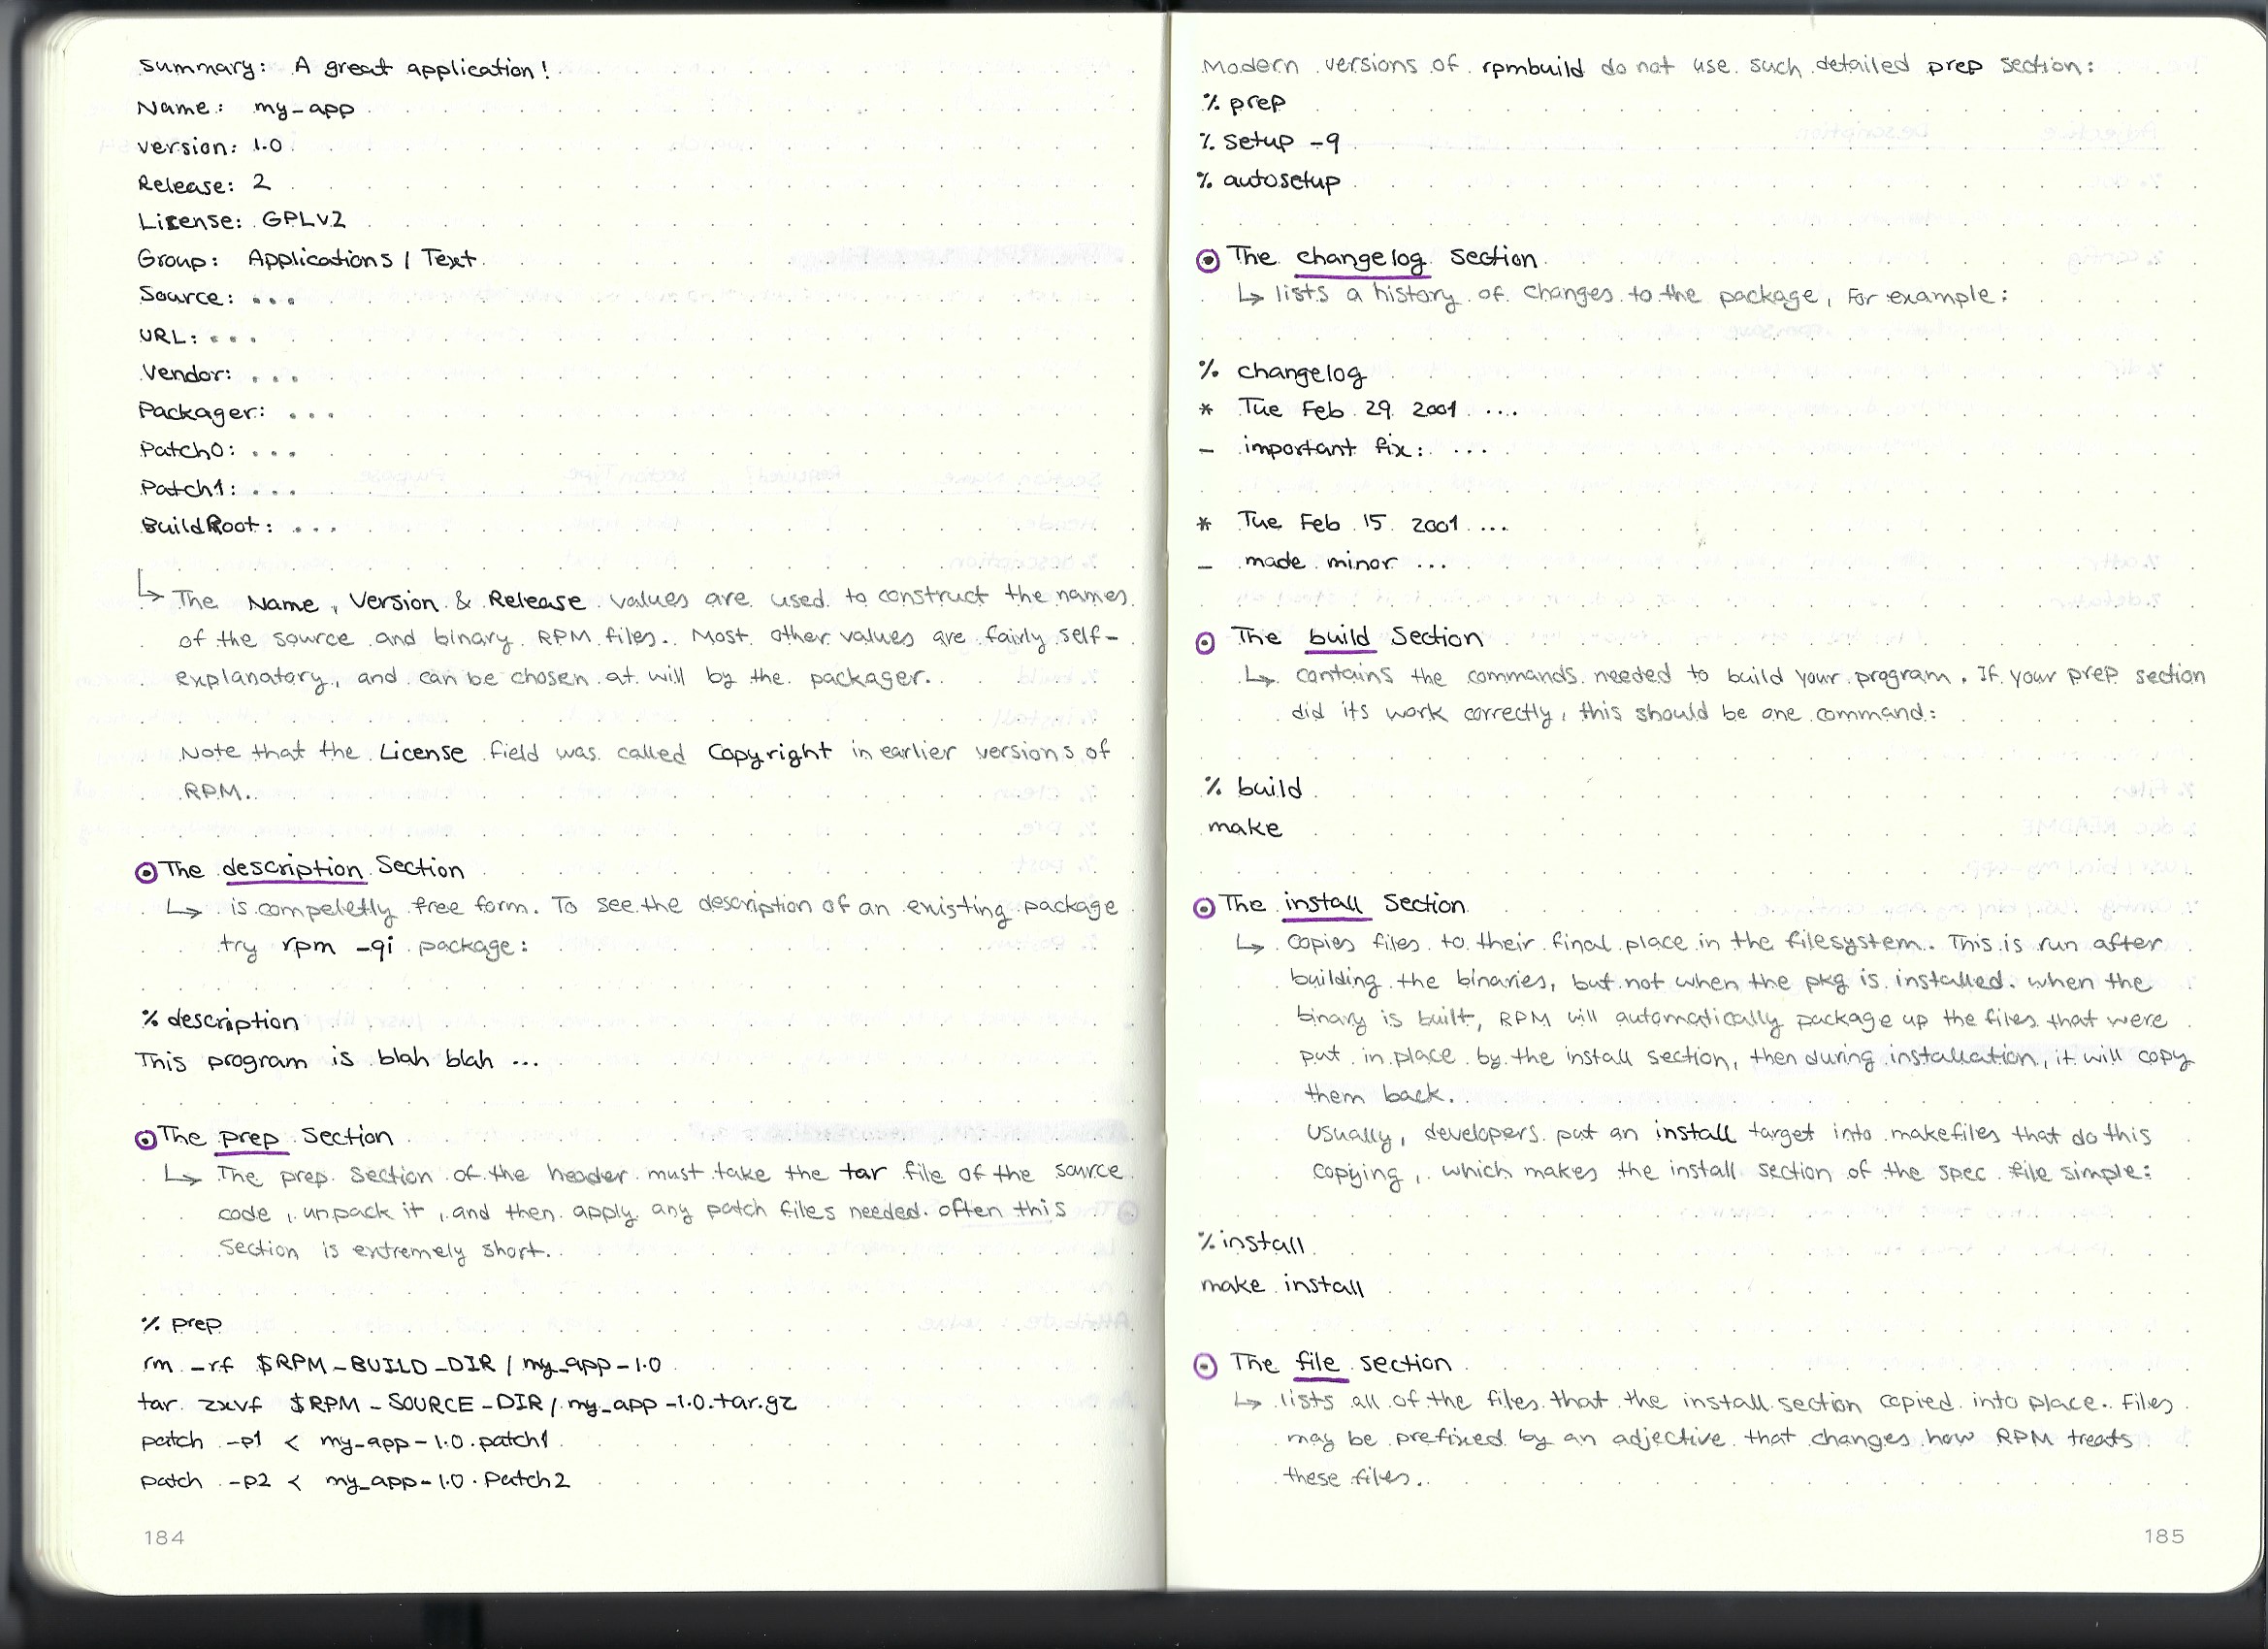 Summary: A great application!
Name: my_app
version: 1.0
Release: 2
License: GPLv2
Group: Applications / Text
Source: ...
URL: ...
Vendor: ...
Packager: ...
Patch0: ...
Patch1: ...
BuildRoot: ...
↳ The Name, Version & Release values are used to construct the names
of the source and binary RPM files. Most other values are fairly self-
explanatory, and can be chosen at will by the packager.
Note that the License field was called Copyright in earlier versions of
RPM.
⊙ The description Section
↳ is compeletly free form. To see the description of an existing package
try rpm -qi package:
% description
This program is blah blah ...
⊙ The prep Section
↳ The prep section of the header must take the tar file of the source
code, unpack it, and then apply any patch files needed. often this
Section is extremely short.
% prep
rm -rf $RPM_BUILD_DIR/my_app-1.0
tar zxvf $RPM_SOURCE_DIR/my_app-1.0.tar.gz
patch -p1 < my_app-1.0.patch1
patch -p2 < my_app-1.0.patch2
184
Modern versions of rpmbuild do not use such detailed prep section:
% prep
% setup -q
% autosetup
⊙ The changelog Section
↳ lists a history of changes to the package, For example:
% changelog
* Tue Feb 29 2001 ....
- important fix: ...
* Tue Feb 15 2001 ...
- made minor ...
⊙ The build Section
↳ contains the commands needed to build your program. If your prep section
did its work correctly, this should be one command:
% build
make
⊙ The install Section
↳ copies files to their final place in the filesystem. This is run after
building the binaries, but not when the pkg is installed. when the
binary is built, RPM will automatically package up the files that were
put in place by the install section, then during installation, it will copy
them back.
Usually, developers put an install target into makefiles that do this
copying, which makes the install section of the spec file simple:
% install
make install
⊙ The file section
↳ lists all of the files that the install section copied into place. Files
may be prefixed by an adjective that changes how RPM treats
these files.
185